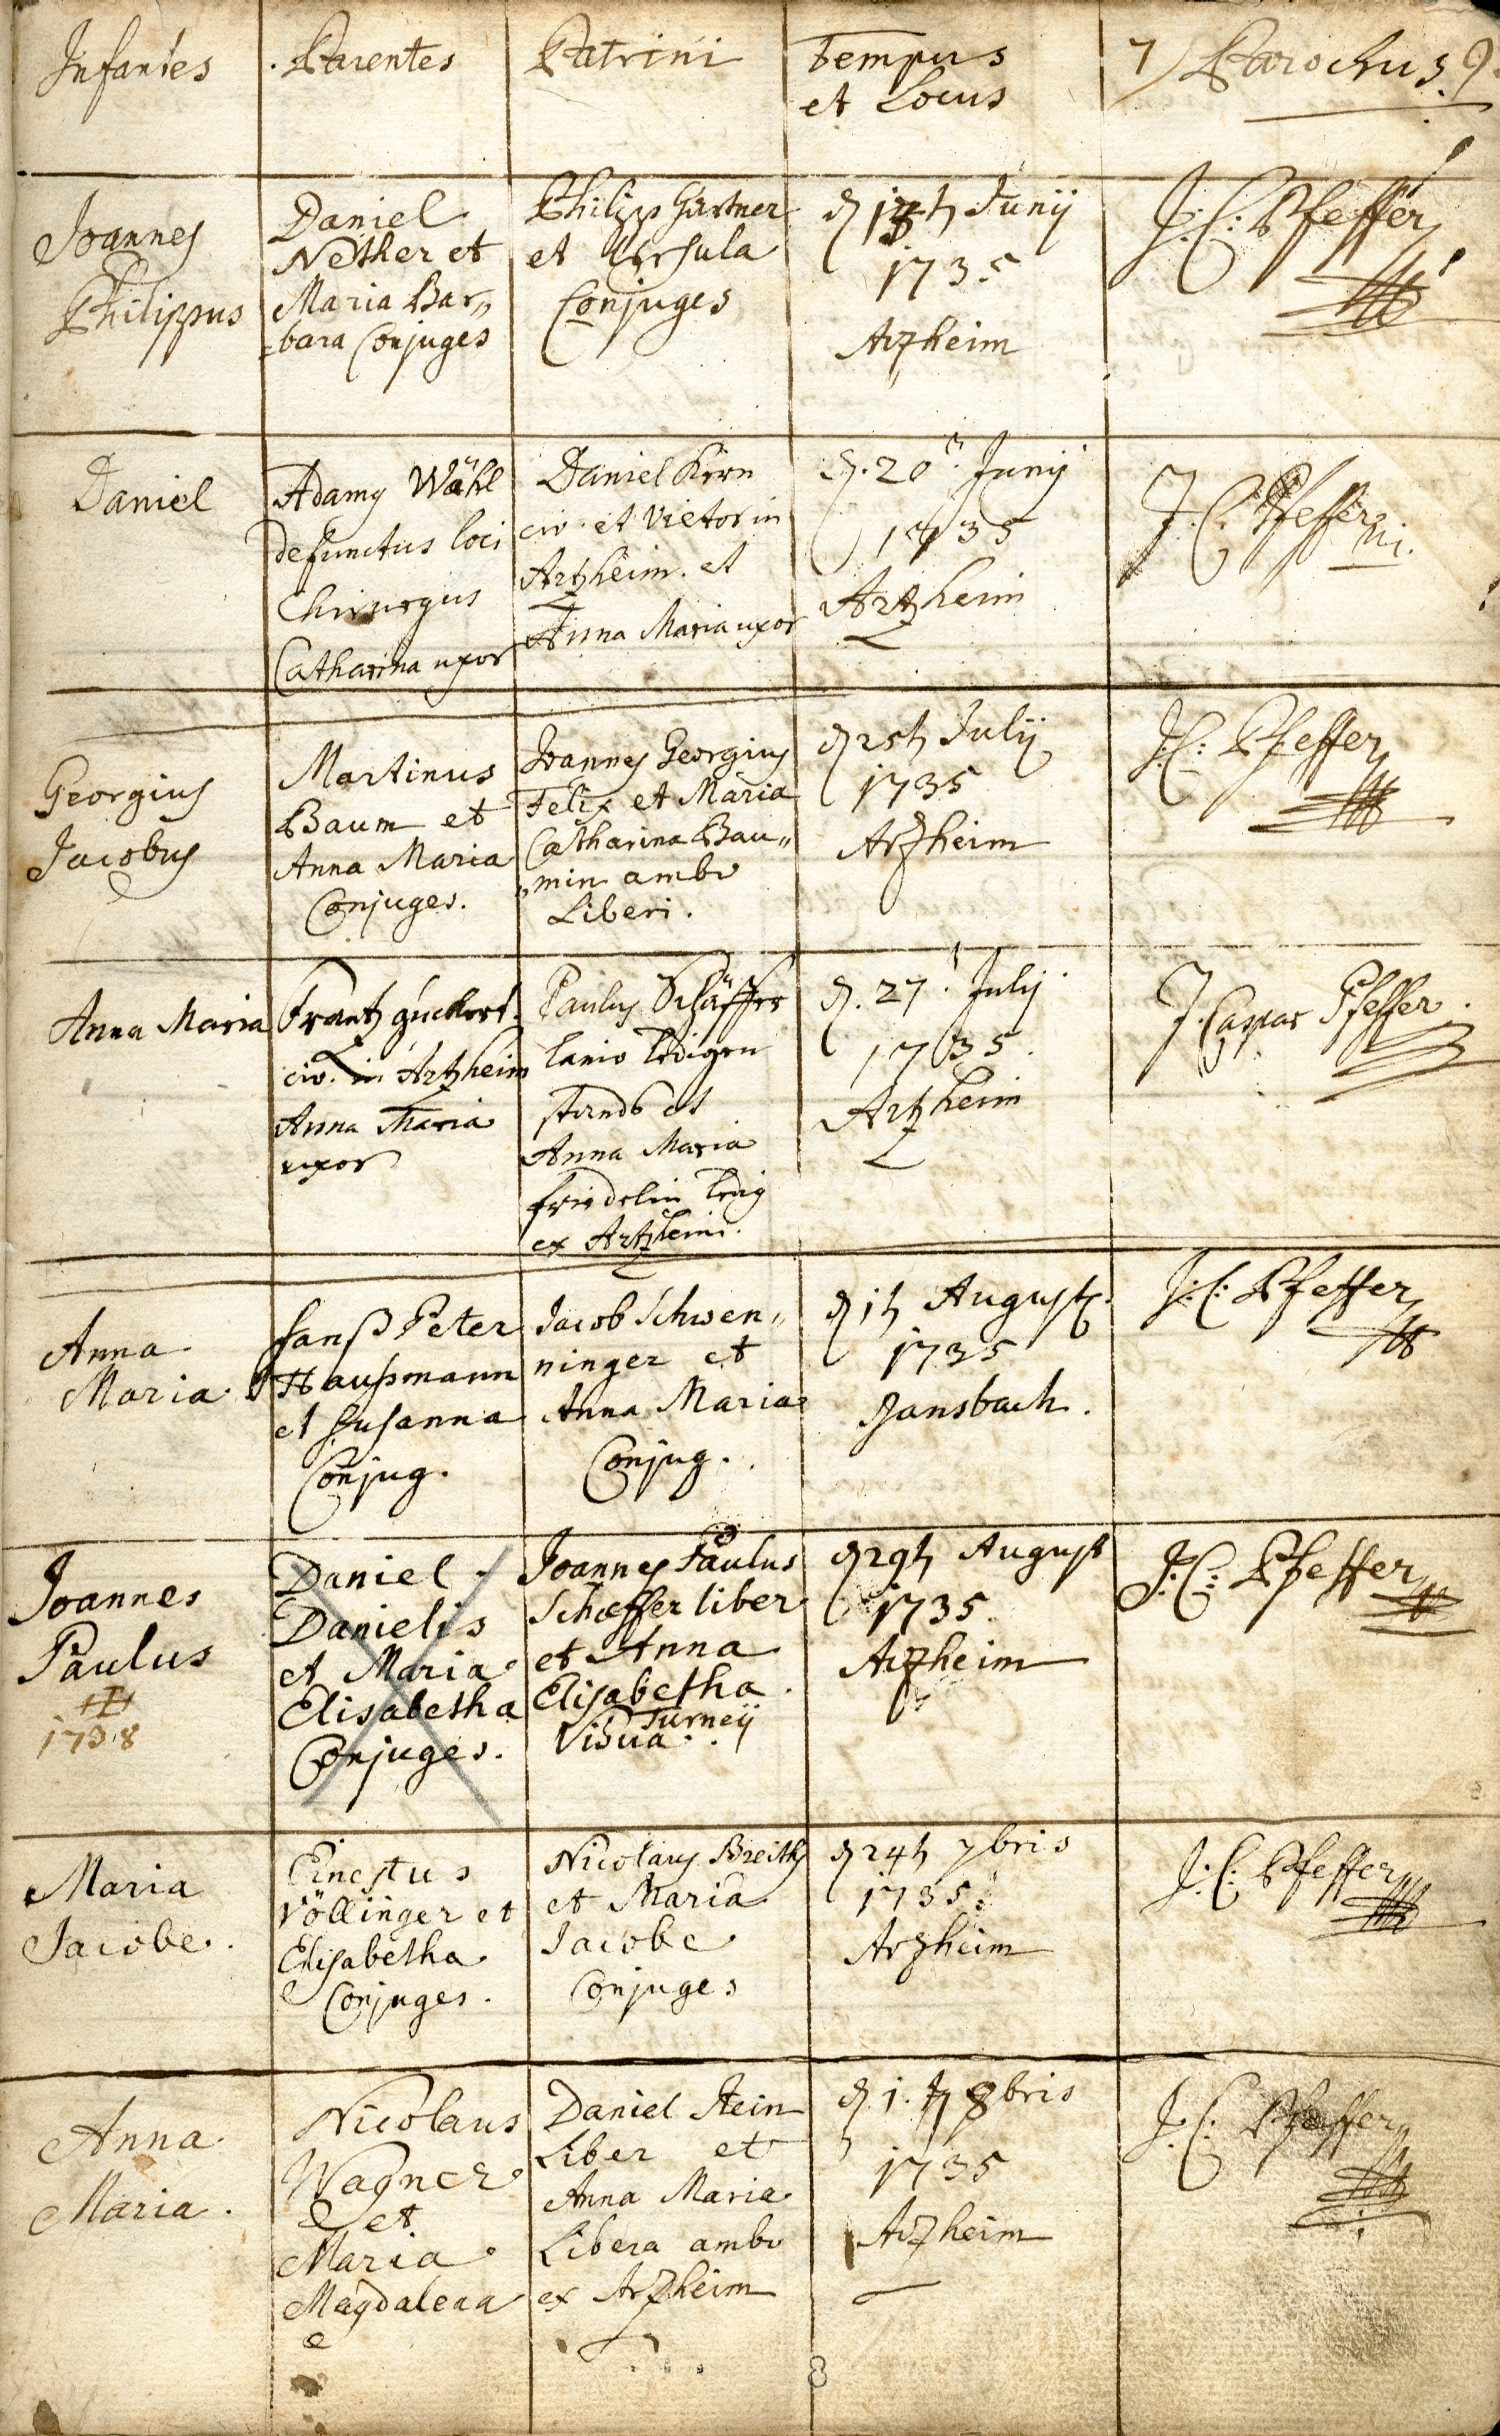 Infantes
Parentes
Patrini
Tempus
et Locus
7
Parochus
Joannes
Philippus
Daniel
Nether et
Maria Bar„
=bara Conjuges
Philipp Gärtner
et Ursula
Conjuges
Junij
1735
Arzheim
J: C: Pfeffer
Daniel
Adamg Wähl
defunctus loci
Chirurgus
Catharina uxor
Daniel Kirn
civ. et vietor in
Artzheim. et
Anna Maria uxor
d. 20t. Junij
1735
Artzheim
J. C. Pfeffer
Georgius
Jacobus
Martinus
Baum et
Anna Maria
Conjuges.
Joannes Georgius
Felix et Maria
Catharina Bau„
„min ambo
Liberi.
d 25t Julij
1735
Arzheim
J: C: Pfeffer
Anna Maria
Frantz guckert.
civ. in Artzheim
Anna Maria
uxor
Paulus Schäffer
lanio ledigen
stands et
Anna Maria
friedelin ledig
ex Artzheim.
d. 27t. Julij
1735.
Artzheim
J. Caspar Pfeffer.
Anna
Maria.
Hanß Peter
Haußmann
et Susanna
Conjug.
Jacob Schwen„
ninger et
Anna Maria
Conjug.
d 1t August.
1735
Ransbach.
J: C: Pfeffer
Joannes
Paulus
1738
Daniel
Danielis
et Maria
Elisabetha
Conjuges.
Joannes Paulus
Schæffer liber
et Anna
Elisabetha
Turneÿ
Vidua.
d 29t August
1735.
Arzheim
J: C: Pfeffer
Maria
Jacobe.
Ernestus
Völlinger et
Elisabetha
Conjuges.
Nicolaus
et Maria
Jacobe
Conjuges
d 24t 7bris
1735.
Arzheim
J: C: Pfeffer
Anna
Maria.
Nicolaus
Wagner
et
Maria
Magdalena
Daniel Stein
Liber et
Anna Maria
Libera ambo
ex Arzheim
d. 1. t 8bris
1735
Arzheim
J. C. Pfeffer
8